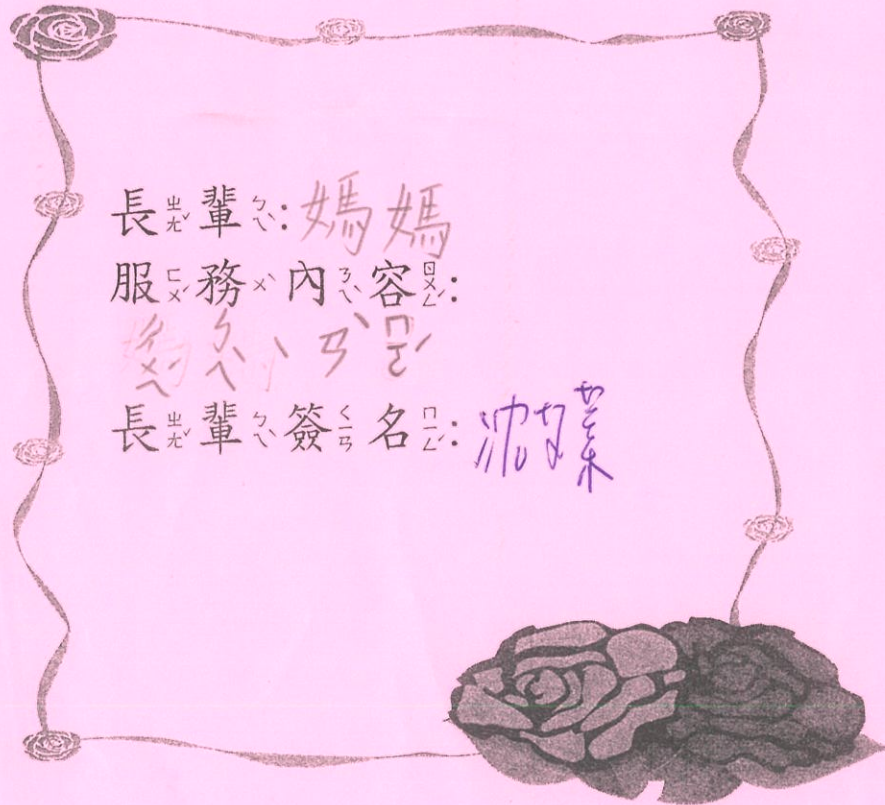 長ㄓㄤˇ輩ㄅㄟˋ:媽媽
服ㄈㄨˊ務ㄨˋ內ㄋㄟˋ容ㄖㄨㄥˊ:
ㄔㄨㄟ ㄅㄟˋ ㄢˋ ㄇㄛˊ
長ㄓㄤˇ輩ㄅㄟˋ簽ㄑㄧㄢ名ㄇㄧㄥˊ:沈